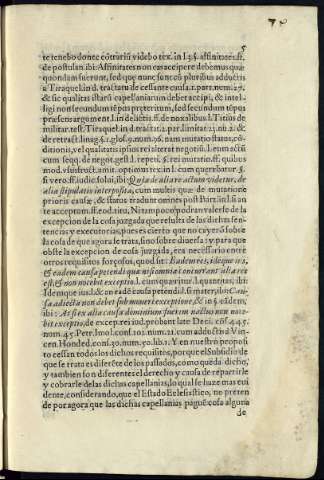 5
te tenebo donec cõtrariũ videbo tex. in l. 35. affinitates. ff.
de postulan. ibi: Affinitates non eas accipere debemus quæ
quondam fuerunt, sed quæ nunc sunt cũ pluribus adductis
a Tiraquel. in d. tractatu de cessante causa. 1. part. num. 27.
& sic qualitas istarũ capellaniarum debet accipi, & intel-
ligi non secundum tẽpus præteritum, sed secundum tẽpus
præsens argument. l. in delictis. ff. de noxalibus. l. Titius de
militar. test. Tiraquel. in d. tractat. 2. par. limitat. 2. nu. 2. &
de retract. linag. §. 1. glos. 9. num. 76. nam mutatio status, cõ
ditionis, vel qualitatis ipsos rei alterat negotiũ. l. eum actũ
cum seqq. de negot. gest. l. repeti. §. rei mutatio. ff. quibus
mod. vsusfruct. amit. optimus tex. in l. cum querebatur §.
si vero. ff. iudic. solui, ibi: Quia de alia re actum videtur, de
alia stipulatio interposita, cum multis quæ de mutatione
prioris causæ, de status tradunt omnes post Paπt. in l. si an
te acceptum. ff. eod. titu, Ni tampoco podran valerse de la
excepcion de la cosa juzgada que resulta de las dichas sen-
tencias y executorias, pues es cierto que no cayerõ sobre
la cosa de que agora se trata, sino sobre diuersa: y para que
obste la excepcion de cosa juzgada, era necessario entre
otros requisitos forçosos, quod sit: Eadem res, idcque ius,
& eadem causa petendi quæ nisi omnia concurrant alia res
est, & non nocebit exceptio. l. cum quæritur. l. quantitas, ibi:
Idemque ius. l. & an eadẽ causa petendi. l. si mater, ibi: Cau-
sa adiecta non debet submoueri exceptione, & in §. eãdem,
ibi: At si ex alia causa dominium fuerit nactus non noce-
bit exceptio, de except. rei iud. probant late Deci. cõs. 445.
num. 45. Petr. Imol. consl. 101. nu. 21. cum addo. sub d. Vin
cen. Honded. cons. 40. num. 30. lib. 1. Y en nuestro proposi
to cessan todos los dichos requisitos, porque el Subsidio de
que se trata es diferẽte de los passados, como queda dicho,
y tambien son diferentes el derecho y causa de repartirle
y cobrarle de las dichas capellanias, lo qual se haze mas eui
dente, considerando, que el Estado Eclesiastico, no preten
de por agora que las dichas capellanias paguẽ cosa alguna
de